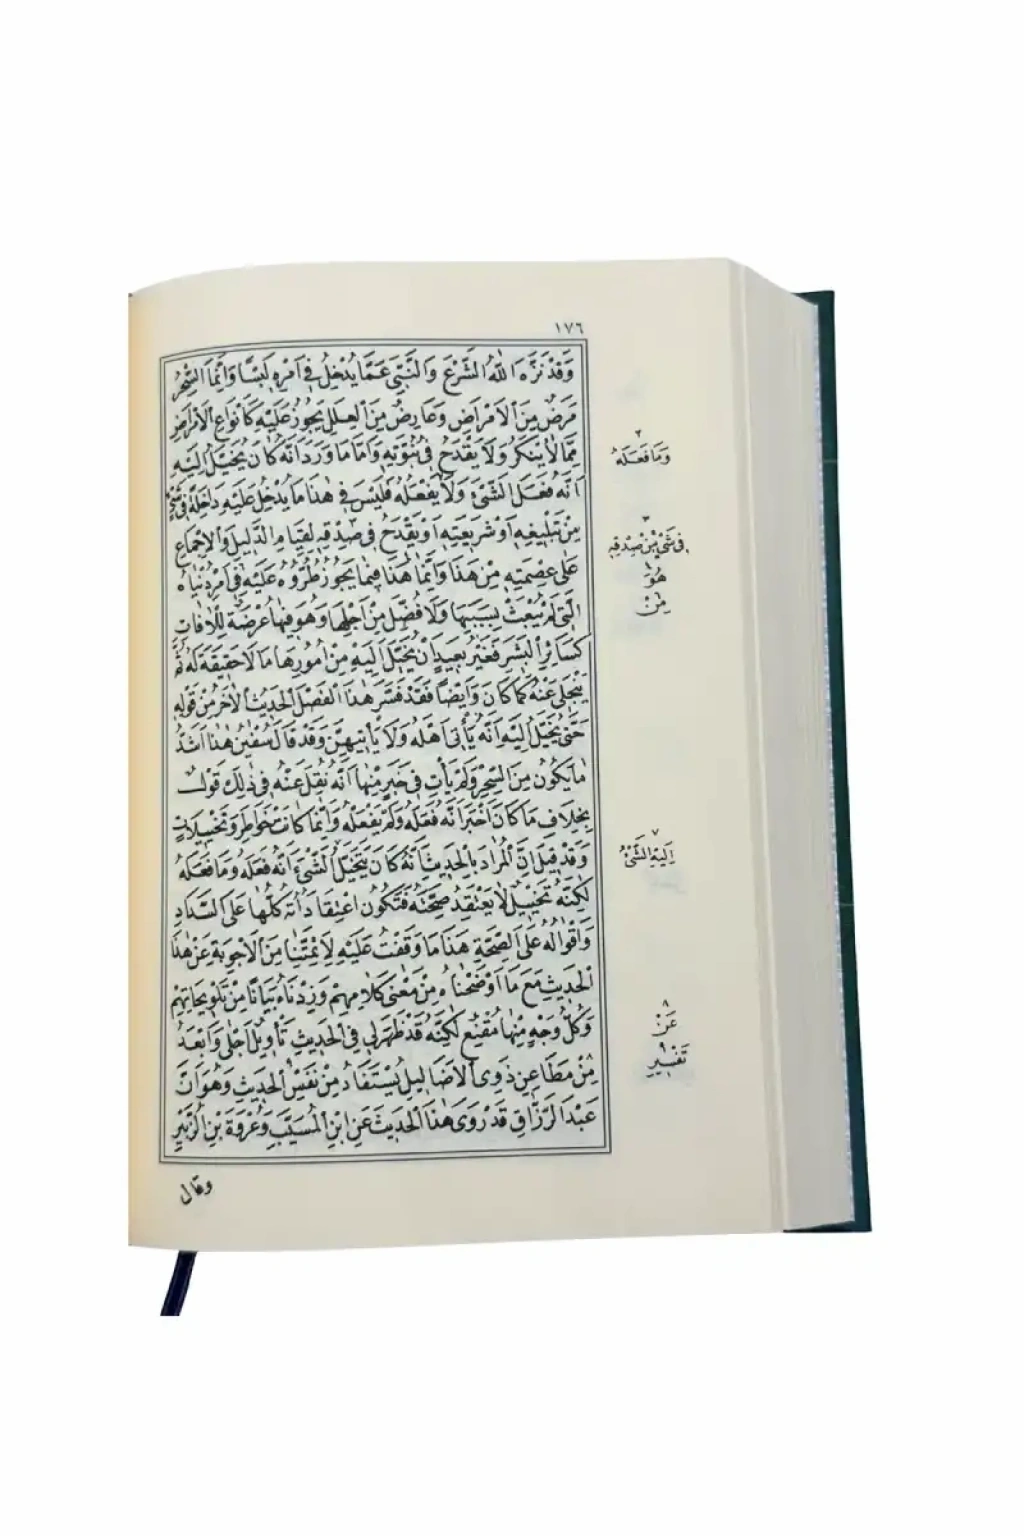 ١٧٦
وَقَدْ نَزَّهَ اللهُ الشَّرْعَ وَالنَّبِيَّ عَمَّا يُدْخِلُ فِي اَمْرِهِ لَبْسًا وَاِنَّمَا السِّحْرُ
مَرَضٌ مِنَ الْاَمْرَاضِ وَعَارِضٌ مِنَ الْعِلَلِ يَجُوزُ عَلَيْهِ كَاَنْوَاعِ الْاَمْرَاضِ
مِمَّا لَا يُنْكَرُ وَلَا يَقْدَحُ فِي نُبُوَّتِهِ وَاَمَّا مَا وَرَدَ اَنَّهُ كَانَ يُخَيَّلُ اِلَيْهِ
اَنَّهُ فَعَلَ الشَّيْءَ وَلَا يَفْعَلُهُ فَلَيْسَ فِي هٰذَا مَا يُدْخِلُ عَلَيْهِ دَاخِلَةً فِي شَيْءٍ
مِنْ تَبْلِيغِهِ اَوْ شَرِيعَتِهِ اَوْ يَقْدَحُ فِي صِدْقِهِ لِقِيَامِ الدَّلِيلِ وَالْاِجْمَاعِ
عَلَى عِصْمَتِهِ مِنْ هَذَا وَاِنَّمَا هَذَا فِيمَا يَجُوزُ طُرُوُّهُ عَلَيْهِ فِي اَمْرِ دُنْيَاهُ
الَّتِي لَمْ يُبْعَثْ بِسَبَبِهَا وَلَا فُضِّلَ مِنْ اَجْلِهَا وَهُوَ فِيهَا عُرْضَةٌ لِلْاٰفَاتِ
كَسَائِرِ الْبَشَرِ فَغَيْرُ بَعِيدٍ اَنْ يُخَيَّلَ اِلَيْهِ مِنْ اُمُورِهَا مَا لَا حَقِيقَةَ لَهُ ثُمَّ
يَنْجَلِي عَنْهُ كَمَا كَانَ وَاَيْضًا فَقَدْ فَسَّرَ هٰذَا الْفَصْلَ الْحَدِيثُ الْاٰخَرُ مِنْ قَوْلِهِ
حَتّٰى يُخَيَّلَ اِلَيْهِ اَنَّهُ يَأْتِي اَهْلَهُ وَلَا يَأْتِيهِنَّ وَقَدْ قَالَ سُفْيٰنُ هٰذَا اَشَدُّ
مَا يَكُونُ مِنَ السِّحْرِ وَلَمْ يَأْتِ فِي خَبَرٍ مِنْهَا اَنَّهُ نُقِلَ عَنْهُ فِي ذٰلِكَ قَوْلٌ
بِخِلَافِ مَا كَانَ اَخْبَرَ اَنَّهُ فَعَلَهُ وَلَمْ يَفْعَلْهُ وَاِنَّمَا كَانَتْ خَوَاطِرَ وَتَخْيِيلَاتٍ
وَقَدْ قِيلَ اِنَّ الْمُرَادَ بِالْحَدِيثِ اَنَّهُ كَانَ يَتَخَيَّلُ الشَّيْءَ اَنَّهُ فَعَلَهُ وَمَا فَعَلَهُ
لٰكِنَّهُ تَخْيِيلٌ لَا يَعْتَقِدُ صِحَّتَهُ فَتَكُونُ اعْتِقَادَاتُهُ كُلُّهَا عَلَى السَّدَادِ
وَاَقْوَالُهُ عَلَى الصِّحَّةِ هَذَا مَا وَقَفْتُ عَلَيْهِ لِاَئِمَّتِنَا مِنَ الْاَجْوِبَةِ عَنْ هٰذَا
الْحَدِيثِ مَعَ مَا اَوْضَحْنَاهُ مِنْ مَعْنٰى كَلَامِهِمْ وَزِدْنَاهُ بَيَانًا مِنْ تَلْوِيحَاتِهِمْ
وَكُلُّ وَجْهٍ مِنْهَا مُقْنِعٌ لٰكِنَّهُ قَدْ ظَهَرَ لِي فِي الْحَدِيثِ تَأْوِيلٌ اَجْلٰى وَاَبْعَدُ
مِنْ مَطَاعِنِ ذَوِي الْاَضَالِيلِ يُسْتَفَادُ مِنْ نَفْسِ الْحَدِيثِ وَهُوَ اَنَّ
عَبْدَ الرَّزَّاقِ قَدْ رَوَى هٰذَا الْحَدِيثَ عَنِ ابْنِ الْمُسَيَّبِ وَعُرْوَةَ بْنِ الزُّبَيْرِ
وقال
٢
وَمَا فَعَلَهُ
٣
فِي شَيْءٍ مِنْ صِدْقِهِ
هُوَ
مِنْ
٧
اِلَيْهِ الشَّيْءُ
٨
عَنْ
٩
تَفْسِيرِ